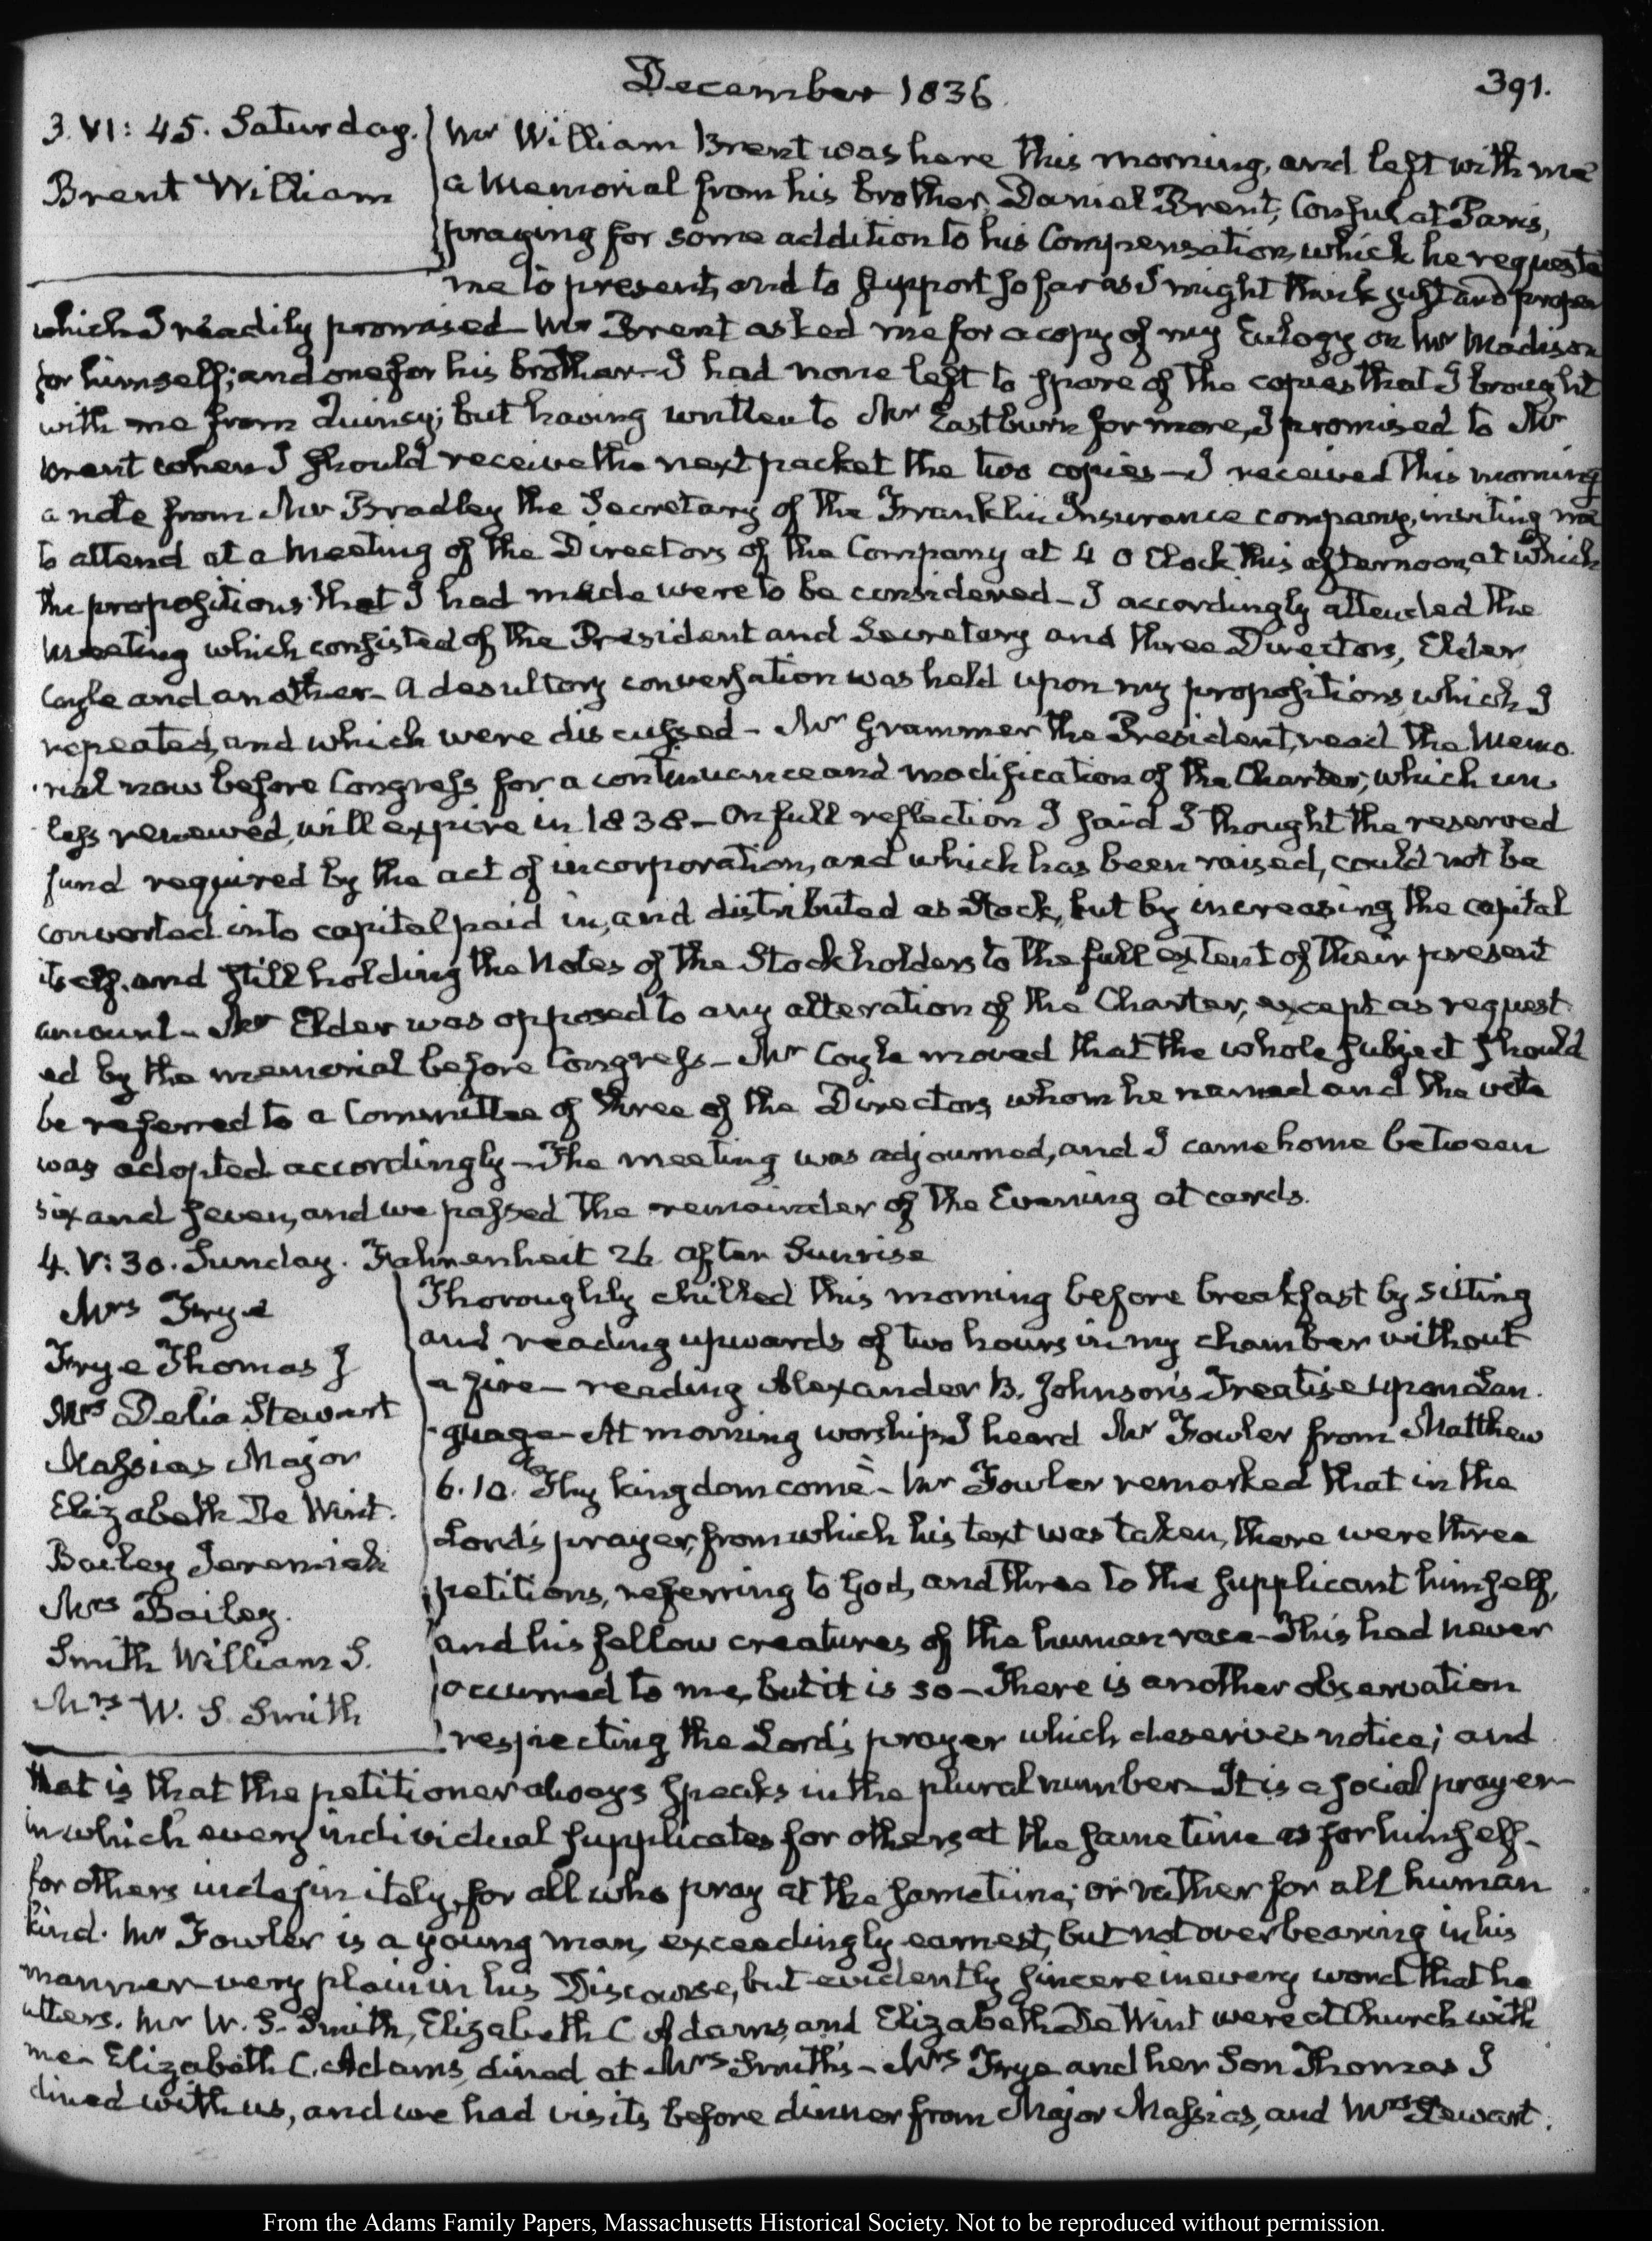 December 1836
391.
3. VI: 45. Saturday.
Brent William
Mr William Brent was here this morning, and left with me
a Memorial from his brother Daniel Brent, Consul at Paris,
praying for some addition to his Compensation, which he requested
me to present, and to support so far as I might think just and proper
which I readily promised - Mr Brent asked me for a copy of my Eulogy on Mr Madison
for himself; and one for his brother - I had none left to spare of the copies that I brought
with me from Quincy; but having written to Mr Eastburn for more, I promised to Mr
Brent when I should receive the next packet the two copies - I received this morning
a note from Mr Bradley the Secretary of the Franklin Insurance company, inviting me
to attend at a Meeting of the Directors of the Company at 4 O Clock this afternoon, at which
the propositions that I had made were to be considered - I accordingly attended the
Meeting which consisted of the President and Secretary and three Directors, Elder
Coyle and another - A desultory conversation was held upon my propositions which I
repeated, and which were discussed - Mr Grammer the President, read the Memo-
-rial now before Congress for a continuance and modification of the Charter, which un-
less renewed, will expire in 1838 - On full reflection I said I thought the reserved
fund required by the act of incorporation, and which has been raised, could not be
converted into capital paid in, and distributed as Stock, but by increasing the capital
itself, and still holding the Notes of the Stockholders to the full extent of their present
amount - Mr Elder was opposed to any alteration of the Charter, except as request-
ed by the memorial before Congress - Mr Coyle moved that the whole subject should
be referred to a Committee of three of the Directors, whom he named and the vote
was adopted accordingly - The meeting was adjourned, and I came home between
six and seven, and we passed the remainder of the Evening at cards.
4. V: 30. Sunday. Fahrenheit 26 after Sunrise
Mrs Frye
Frye Thomas J
Mrs Delia Stewart
Massias Major
Elizabeth De Wint.
Bailey Jeremiah
Mrs Bailey.
Smith William S.
Mrs W. S. Smith
Thoroughly chilled this morning before breakfast by sitting
and reading upwards of two hours in my chamber without
a fire - reading Alexander B. Johnson's Treatise upon Lan-
-guage - At morning worship I heard Mr Fowler from Matthew
6. 10. "Thy kingdom come" - Mr Fowler remarked that in the
Lord's prayer, from which his text was taken, there were three
petitions, referring to God, and three to the supplicant himself,
and his fellow creatures of the human race - This had never
occurred to me, but it is so - There is another observation
respecting the Lord's prayer which deserves notice; and
that is that the petitioner always speaks in the plural number - It is a social prayer -
in which every individual supplicates for others at the same time as for himself -
for others indefinitely, for all who pray at the same time; or rather for all human
kind. Mr Fowler is a young man, exceedingly earnest, but not overbearing in his
manner - very plain in his Discourse, but evidently sincere in every word that he
utters. Mr W. S. Smith, Elizabeth C Adams, and Elizabeth De Wint were at Church with
me - Elizabeth C. Adams, dined at Mrs Smith's - Mrs Frye and her Son Thomas J
dined with us, and we had visits before dinner from Major Massias, and Mrs Stewart.
From the Adams Family Papers, Massachusetts Historical Society. Not to be reproduced without permission.